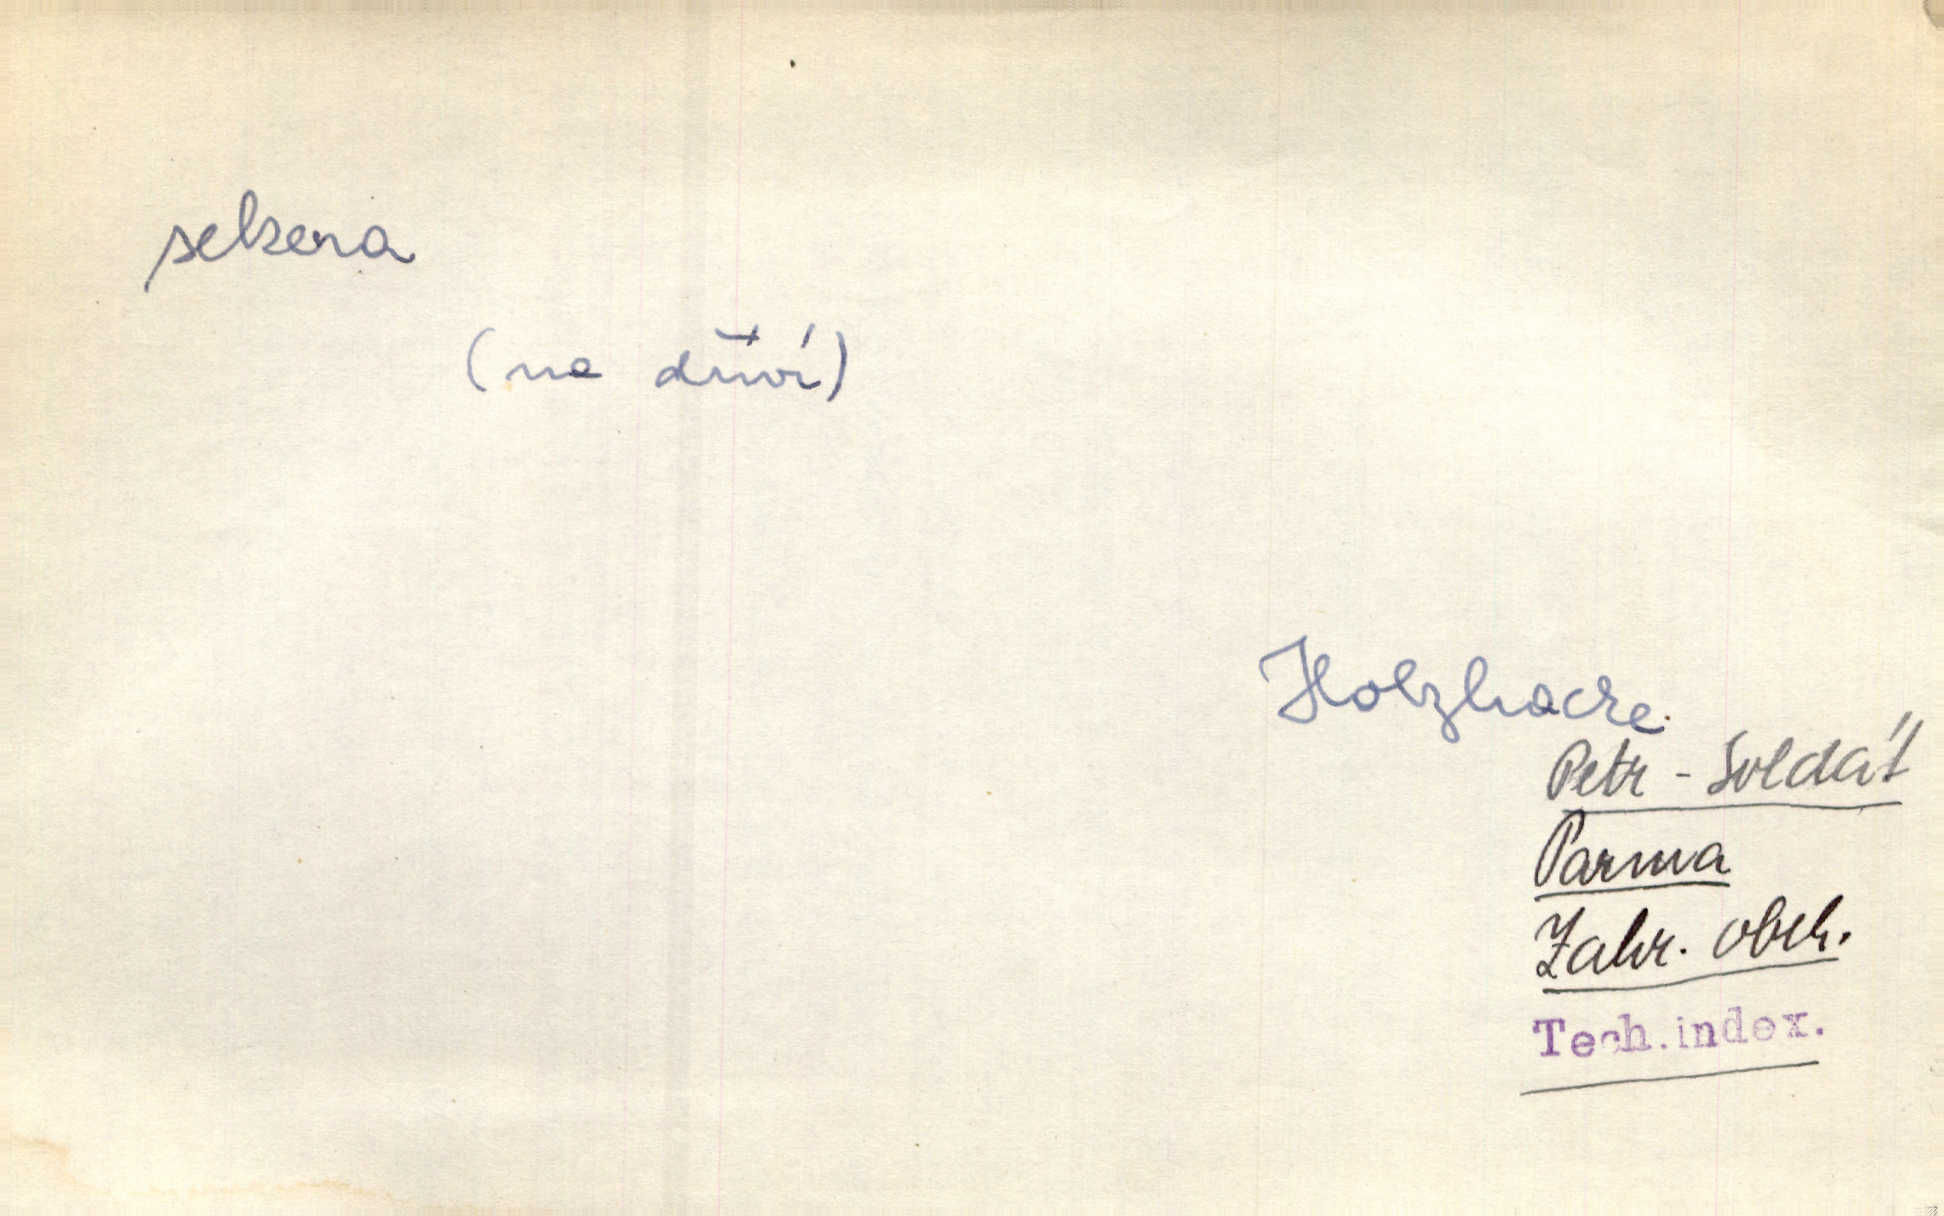 sekera
(na dříví)
Holzhacke
Petr - Soldát
Parma
Zahr. obch.
Tech.index.